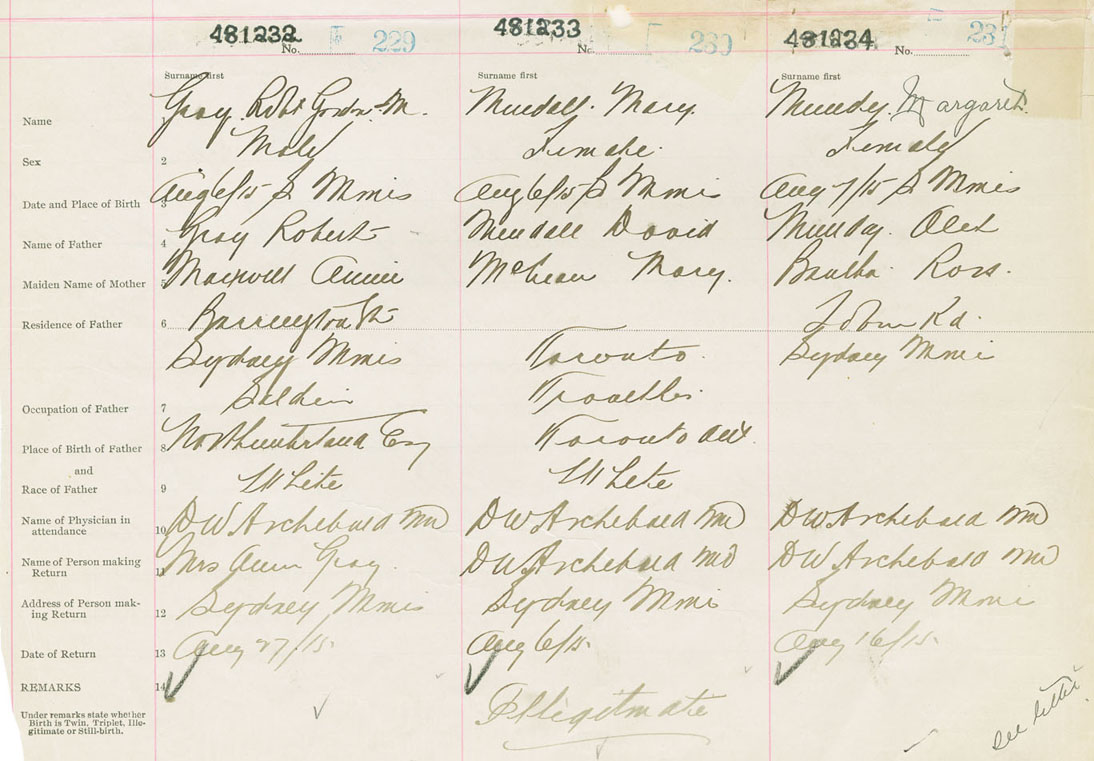 481232 No. 229 481233 No. 230 481234 No. 231
Surname first Surname first Surname first
Name Gray Robt Gordon M. Mundall. Mary. Munday. Margaret.
Sex 2 Male Female. Female
Date and Place of Birth 3 Aug 6/15 S Mines Aug 6/15 S Mines Aug 7/15 S Mines
Name of Father 4 Gray Robert Mundall David Munday. Alex
Maiden Name of Mother 5 Maxwell Annie McLean Mary. Ross.
Residence of Father 6 Barrington St Rd.
Sydney Mines Toronto. Sydney Mines
Occupation of Father 7 Soldier Traveller
Place of Birth of Father 8 Northumberland Eng Toronto Ont
and
Race of Father 9 White White
Name of Physician in
attendance 10 DW Archibald MD DW Archibald MD DW Archibald MD
Name of Person making
Return 11 Mrs Ann Gray. DW Archibald MD DW Archibald MD
Address of Person mak-
ing Return 12 Sydney Mines Sydney Mines Sydney Mines
Date of Return 13 Aug 27/15. Aug 6/15. Aug 16/15.
REMARKS 14
Under remarks state whether
Birth is Twin, Triplet, Ille-
gitimate or Still-birth.
Illegitmate
see letter.